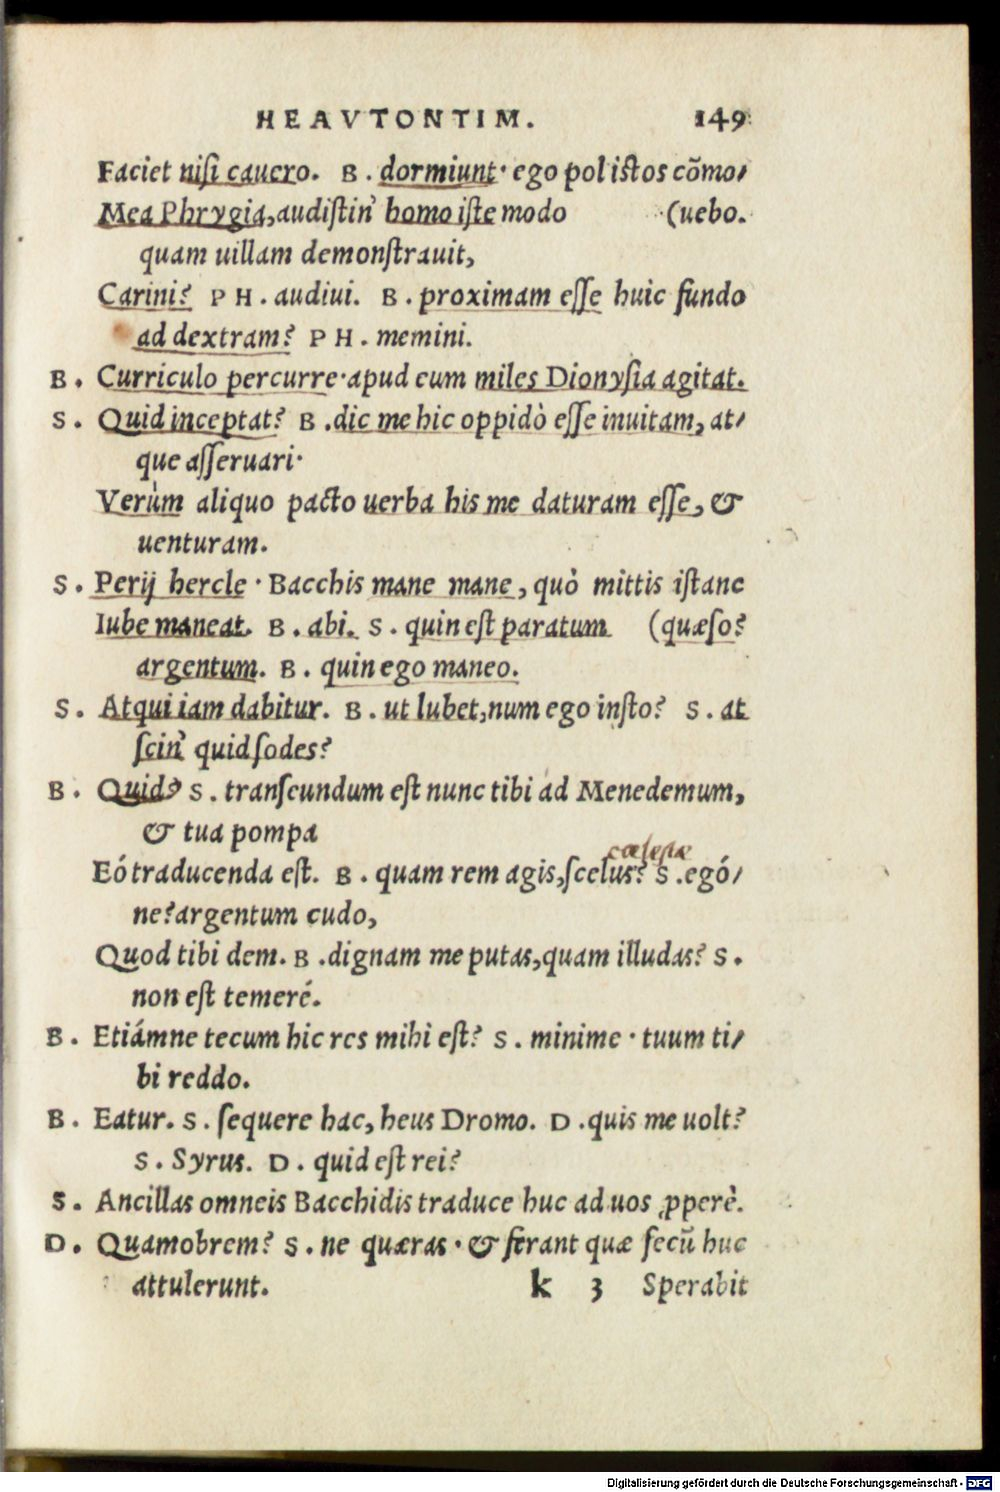 HEAVTONTIM. 149
Faciet nisi cauero. B. dormiunt· ego pol istos cõmo/
Mea Phrygia, audistin' homo iste modo (uebo.
quam uillam demonstrauit,
Carini? PH. audiui. B. proximam esse huic fundo
ad dextram? PH. memini.
B. Curriculo percurre·apud eum miles Dionysia agitat.
S. Quid inceptat? B. dic me hic oppidò esse inuitam, at/
que asseruari·
Verùm aliquo pacto uerba his me daturam esse, &
uenturam.
S. Perij hercle · Bacchis mane mane, quò mittis istanc
Iube maneat. B. abi. S. quin est paratum (quæso?
argentum. B. quin ego maneo.
S. Atqui iam dabitur. B. ut lubet, num ego insto? S. at
scin' quid sodes?
B. Quid? S. transeundum est nunc tibi ad Menedemum,
& tua pompa
Eó traducenda est. B. quam rem agis, scelus? S. egó/
ne? argentum cudo,
Quod tibi dem. B. dignam me putas, quam illudas? S.
non est temeré.
B. Etiámne tecum hic res mihi est? S. minime · tuum ti/
bi reddo.
B. Eatur. S. sequere hac, heus Dromo. D. quis me uolt?
S. Syrus. D. quid est rei?
S. Ancillas omneis Bacchidis traduce huc ad uos ꝓperè.
D. Quamobrem? S. ne quæras · & ferant quæ secũ huc
attulerunt. k 3 Sperabit
Digitalisierung gefördert durch die Deutsche Forschungsgemeinschaft - DFG